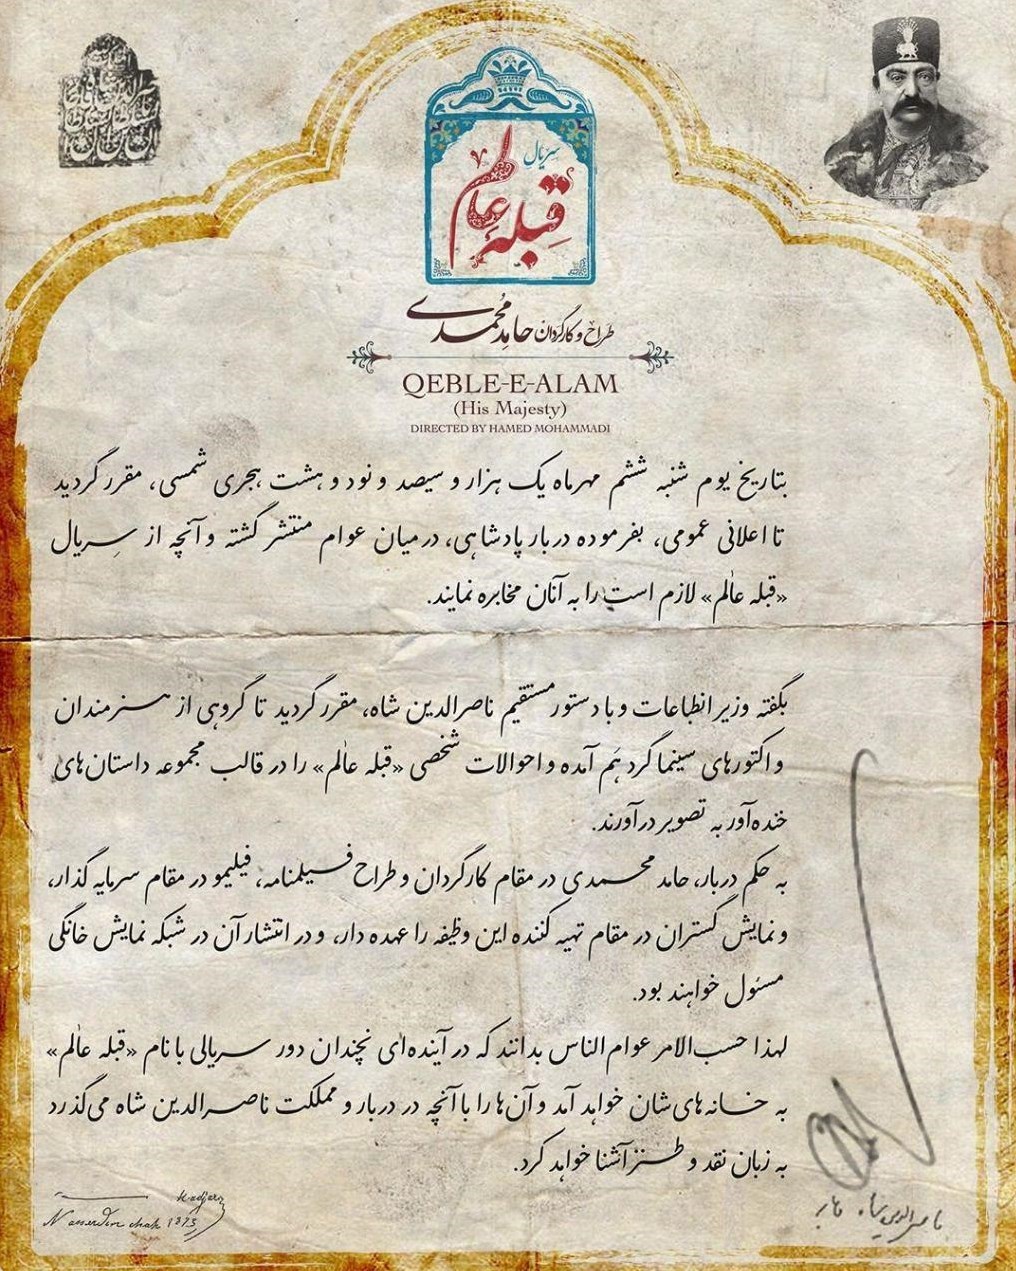 سریال
قبله عالم
طراح و کارگردان حامد محمدی
QEBLE-E-ALAM
(His Majesty)
DIRECTED BY HAMED MOHAMMADI
بتاریخ یوم شنبه ششم مهرماه یک هزار و سیصد و نود و هشت هجری شمسی، مقرر گردید
تا اعلانی عمومی، بفرموده دربار پادشاهی، در میان عوام منتشر گشته و آنچه از سریال
«قبله عالم» لازم است را به آنان مخابره نمایند.
بگفته وزیر انطباعات و با دستور مستقیم ناصرالدین شاه، مقرر گردید تا گروهی از هنرمندان
و اکتورهای سینما گرد هَم آمده و احوالات شخصی «قبله عالم» را در قالب مجموعه داستان‌های
خنده‌آور به تصویر درآورند.
به حکم دربار، حامد محمدی در مقام کارگردان و طراح فیلمنامه، فیلیمو در مقام سرمایه گذار،
و نمایش گستران در مقام تهیه کننده این وظیفه را عهده دار، و در انتشار آن در شبکه نمایش خانگی
مسئول خواهند بود.
لهذا حسب‌الامر عوام الناس بدانند که در آینده‌ای نچندان دور سریالی با نام «قبله عالم»
به خانه‌های‌شان خواهد آمد و آن‌ها را با آنچه در دربار و مملکت ناصرالدین شاه می‌گذرد
به زبان نقد و طنز آشنا خواهد کرد.
Kadjar
Nasserdin chah 1873
ناصرالدین شاه قاجار